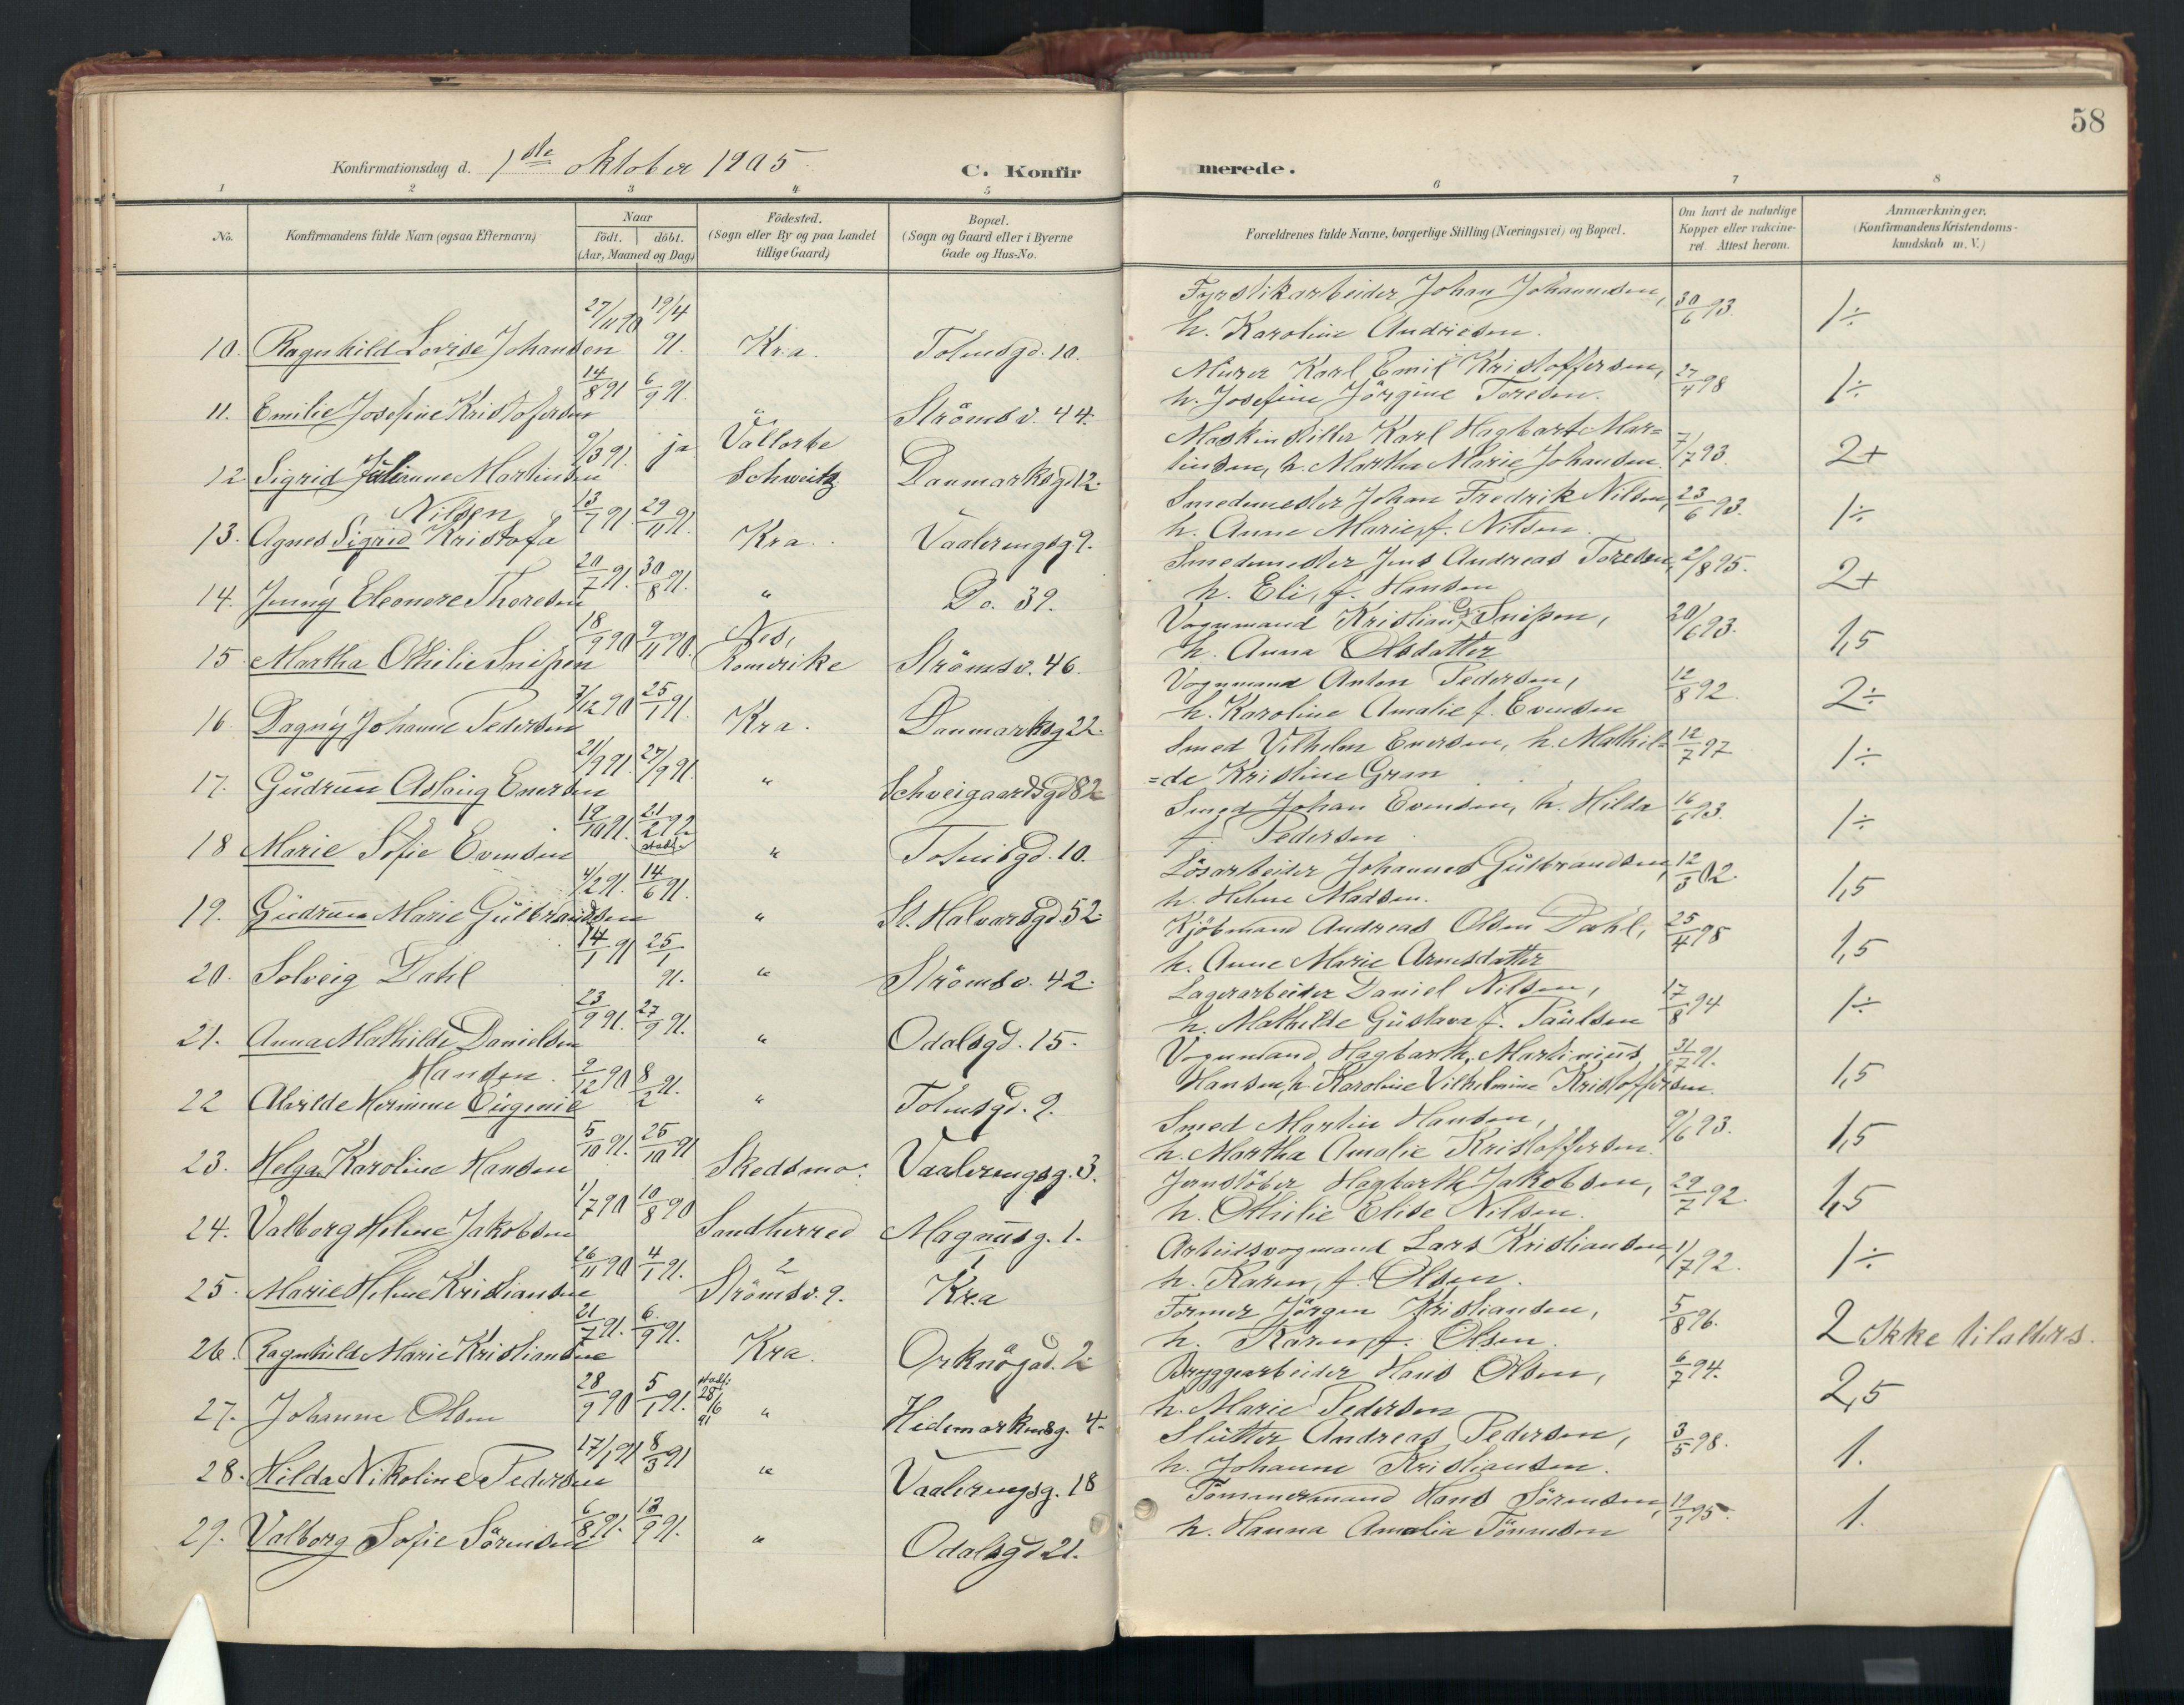 58
Konfirmationsdag d. 1ste oktober 1905.
C. Konfirmerede.
1 2 3 4 5 6 7 8
No.
Konfirmandens fulde Navn (ogsaa Efternavn)
Naar
födt. döbt.
(Aar, Maaned og Dag)
Födested.
(Sogn eller By og paa Landet
tillige Gaard)
Bopæl.
(Sogn og Gaard eller i Byerne
Gade og Hus-No.
Forældrenes fulde Navne, borgerlige Stilling (Næringsvei) og Bopæl.
Om havt de naturlige
Kopper eller vakcine-
ret Attest herom.
Anmærkninger.
(Konfirmandens Kristendoms-
kundskab m. V.)
10. Ragnhild Lovise Johansen 27/11 90 19/4 91. Kra. Toluisgd. 10.
Fyrstikarbeider Johan Johannesen,
h. Karoline Andriesen. 30/6 93. 1÷
11. Emilie Josefine Kristofersen 14/8 91 6/9 91. " Strömsv. 44.
Murer Karl Emil Kristoffersen,
h. Josefine Jörgine Toresen. 27/4 98 1÷
12 Sigrid Julianne Martinsen 9/3 91. ja Vallorbe Schweitz Danmarksgd 12.
Maskinstiller Karl Hagbart Mar=
tinsen, h. Martha Marie Johansen. 7/7 93. 2+
13. Agnes Sigrid Kristofa Nilsen 13/7 91. 29/11 91. Kra. Vaalerengsg. 9.
Smedemester Johan Fredrik Nilsen,
h. Anne Marie f. Nilsen. 23/6 93. 1÷
14. Jenny Eleonore Thoresen 20/7 91. 30/8 91. " Do. 39.
Smedemester Jens Andreas Toresen,
h. Eli, f. Hansen 2/8 95. 2+
15. Martha Othilie Snipen 18/9 90 9/11 90. Nes, Romerike Strömsv. 46.
Vognmand Kristian Snipen,
h. Anna Olsdatter 20/6 93. 1,5
16. Dagny Johanne Pedersen 7/12 90 25/1 91. Kra. Danmarksg 22.
Vognmand Anton Pedersen,
h. Karoline Amalie f. Evensen 12/8 92. 2÷
17. Gudrun Aslaug Enersen 21/9 91. 27/9 91. " Schveigaardsgd 82
Smed Vilhelm Enersen, h. Mathil=
=de Kristine Gran 12/7 97 1÷
18 Marie Sofie Evensen 12/10 91. 21/2 92 stadf. " Toluisgd. 10.
Smed Johan Evensen, h. Hilda
f. Pedersen 16/6 93. 1÷
19. Gudrun Marie Gulbrandsen 4/2 91. 14/6 91. " St. Halvardsgd. 52.
Lösarbeider Johannes Gulbrandsen,
h. Helene Madsen. 12/3 02. 1,5
20. Solveig Dahl 14/1 91 25/1 91. " Strömsv. 42.
Kjöbmand Andreas Olsen Dahl,
h. Anne Marie Arnesdatter 25/4 98 1,5
21. Anna Mathilde Danielsen 23/9 91. 27/9 91. " Odalsgd. 15.
Lagerarbeider Daniel Nilsen,
h. Mathilde Gustava f. Paulsen 17/8 94 1÷
22 Alvilde Hermine Eugenie Hansen. 2/12 90 8/2 91. " Toluisgd. 9.
Vognmand Hagbarth Martinius
Hansen, h. Karoline Vilhelmine Kristoffersen. 31/7 91. 1,5
23. Helga Karoline Hansen 5/10 91. 25/10 91 Skedsmo. Vaalerengsg. 3.
Smed Martin Hansen,
h. Martha Amalie Kristoffersen. 9/6 93. 1,5
24. Valborg Helene Jakobsen 1/7 90 10/8 90 Sandherred Magnusg. 1.
Jernstöber Hagbarth Jakobsen,
h. Othilie Elise Nilsen. 29/7 92. 1,5
25. Marie Helene Kristiansen 26/11 90 4/1 91. 2 Strömsv. 9. 1 Kra
Arbeidsvogmand Lars Kristiansen,
h. Karen, f. Olsen. 1/7 92. 1÷
26. Ragnhild Marie Kristiansen 21/7 91. 6/9 91. Kra. Orknögad. 2
Former Jörgen Kristiansen,
h. Karen f. Olsen. 5/8 96. 2 Ikke til alters.
27. Johanne Olsen 28/9 90 5/1 91. stadf. 28/6 91 " Hedemarkensg. 4.
Bryggearbeider Hans Olsen,
h. Marie Pedersen 6/7 94. 2,5
28. Hilda Nikoline Pedersen 17/1 91 8/3 91 " Vaalerengsg. 18
Slutter Andreas Pedersen,
h. Johanne Kristiansen. 3/5 98. 1.
29. Valborg Sofie Sörensen 6/8 91. 13/9 91. " Odalsgd 21.
Tömmermand Hans Sörensen,
h. Hanna Amalia Tönnesen 19/7 95. 1.